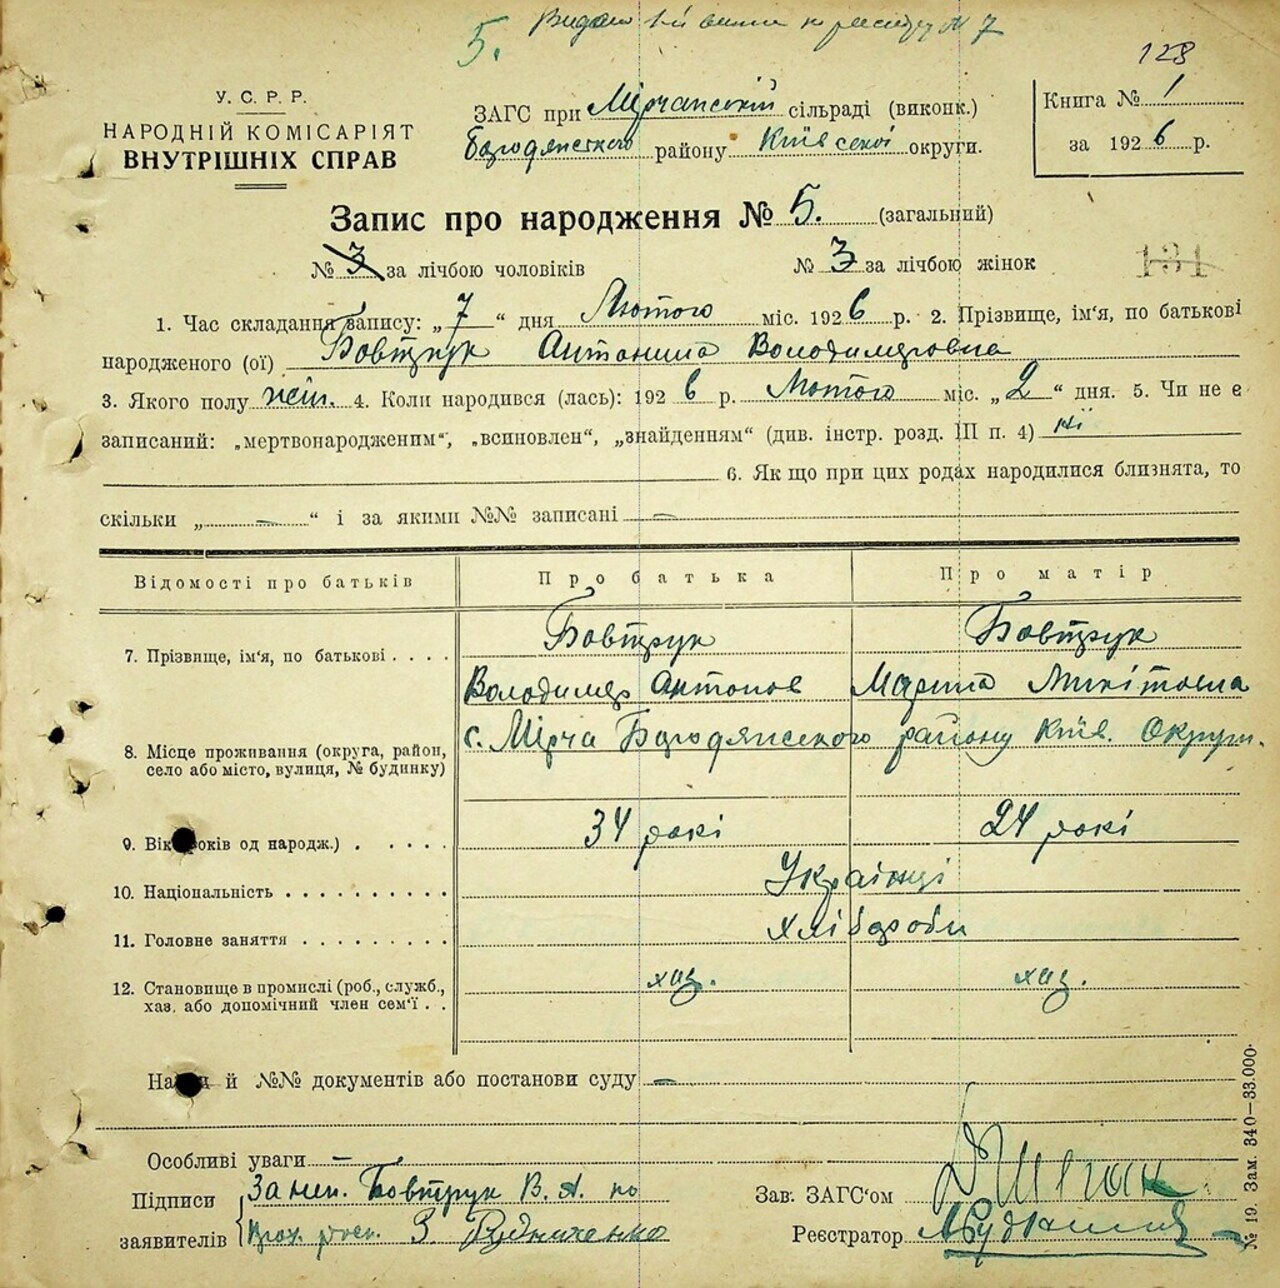 5. Видано 1-й витяг по реєстру № 7
128
У. С. Р. Р.
НАРОДНІЙ КОМІСАРІЯТ
ВНУТРІШНІХ СПРАВ
ЗАГС при Мірчанській сільраді (виконк.)
Бородянского району Київської округи.
Книга № 1
за 1926 р.
Запис про народження № 5. (загальний)
№ 3 за лічбою чоловіків
№ 3 за лічбою жінок
131
1. Час складання запису: „7“ дня Лютого міс. 1926 р. 2. Прізвище, ім'я, по батькові
народженого (ої) Бовтрук Антонина Володимеровна
3. Якого полу жін. 4. Коли народився (лась): 1926 р. Лютого міс. „2“ дня. 5. Чи не є
записаний: „мертвонародженим“, „всиновлен“, „знайденням“ (див. інстр. розд. III п. 4) ні
6. Як що при цих родах народилися близнята, то
скільки „ – “ і за якими №№ записані –
Відомості про батьків
Про батька
Про матір
7. Прізвище, ім'я, по батькові . . . .
Бовтрук
Володимер Антонов
Бовтрук
Марина Микітовна
8. Місце проживання (округа, район,
село або місто, вулиця, № будинку)
с. Мірча Бородянского району Київ. Округи.
9. Вік років од народж.) . . . . .
34 рокі
24 рокі
10. Національність . . . . . . . . . .
Українці
11. Головне заняття . . . . . . . . .
Хлібороби
12. Становище в промислі (роб., служб.,
хаз. або допомічний член сем'ї . .
хаз.
хаз.
й №№ документів або постанови суду –
Особливі уваги –
Підписи
заявителів
За неп. Бовтрук В. А. по
З. Рудниченко
Зав. ЗАГС'ом
Реєстратор
№ 19. Зам. 340–33.000.